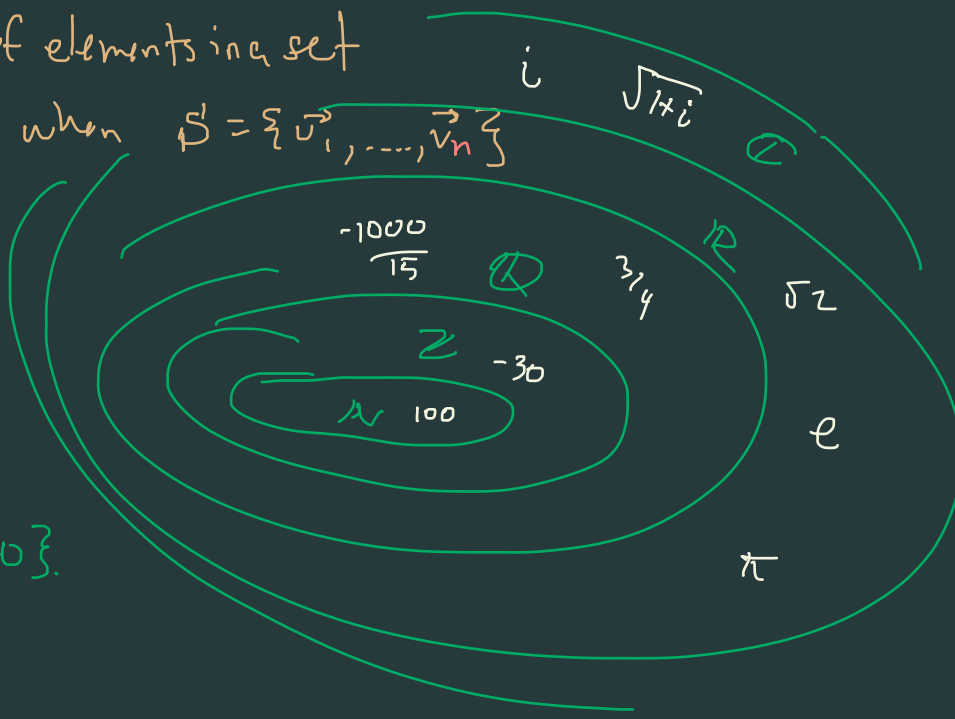 f elements in a set
when S = {v⃗₁, ....., v⃗ₙ}
i
√1+i
ℂ
-1000
15
ℚ
3/4
ℝ
√2
ℤ
-30
ℕ 100
e
0}.
π